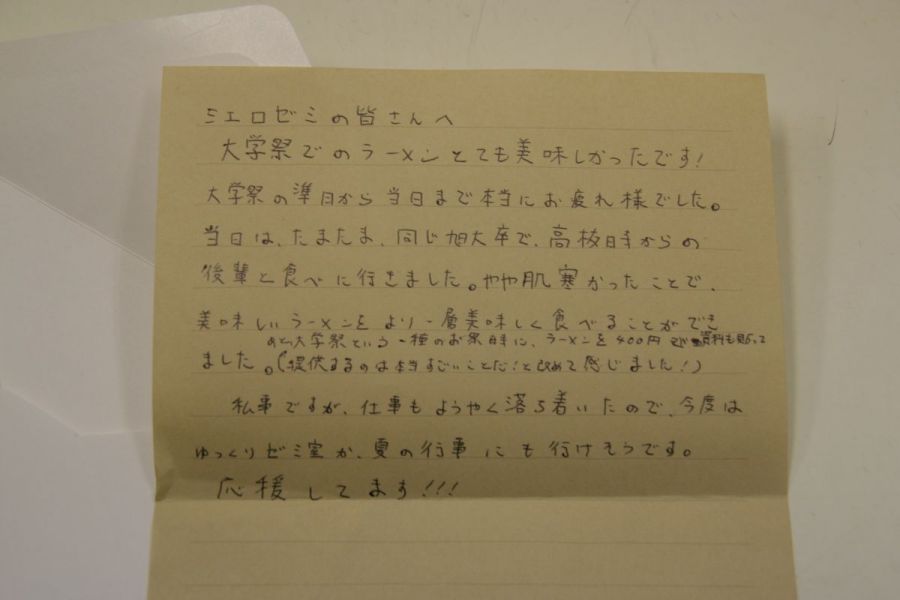 ミエロゼミの皆さんへ
大学祭でのラーメンとても美味しかったです!
大学祭の準日から当日まで本当にお疲れ様でした。
当日は、たまたま、同じ旭大卒で、高校時からの
後輩と食べに行きました。やや肌寒かったことで、
美味しいラーメンをより一層美味しく食べることができ
大学祭という一種のお祭時に、ラーメンを400円 資料も貼って
ました。(提供するのは本当すごいことだ!と改めて感じました!)
私事ですが、仕事もようやく落ち着いたので、今度は
ゆっくりゼミ室か、夏の行事にも行けそうです。
応援してます!!!